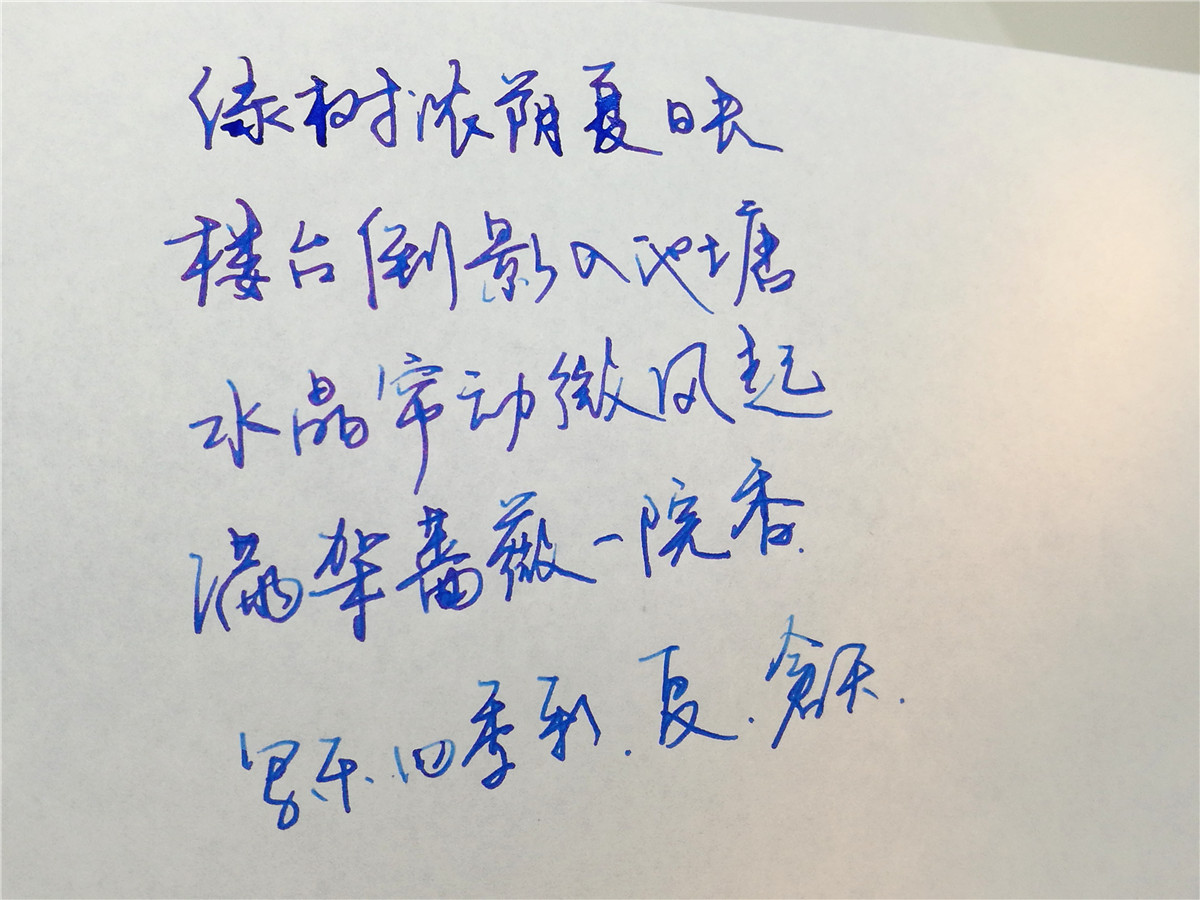 绿树浓荫夏日长
楼台倒影入池塘
水晶帘动微风起
满架蔷薇一院香.
写乐.四季彩.夏.倉天.